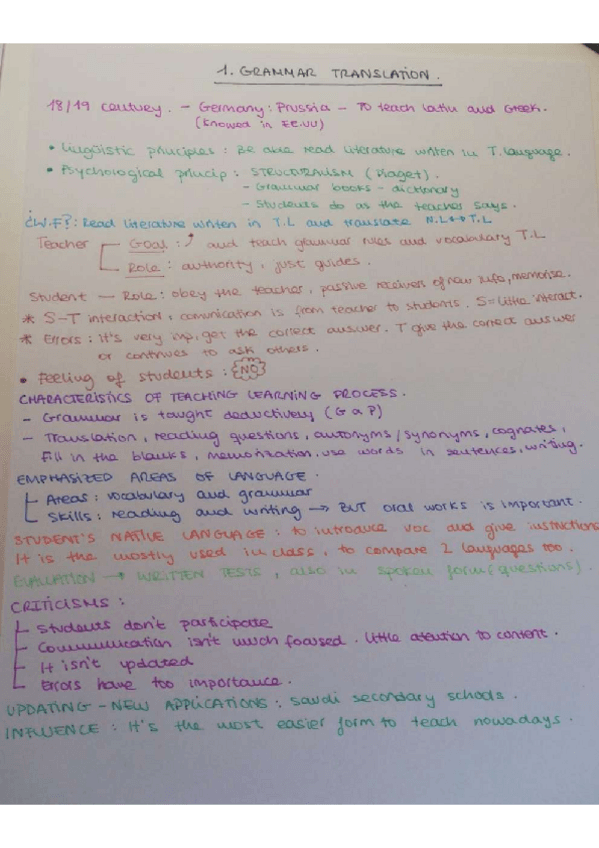 1. GRAMMAR TRANSLATION.
18/19 century. - Germany: Prussia - TO teach Latin and Greek.
(Knowed in EE.UU)
• Lingüistic principles: Be able read literature writen in T. language.
• Psychological princip: STRUCTURALISM (Piaget).
- Grammar books - dictionary
- Students do as the teacher says.
¿W.F?: Read literature writen in T.L and translate N.L↔T.L
Teacher Goal: and teach grammar rules and vocabulary T.L
Role: authority, just guides.
Student - Role: obey the teacher, passive receivers of new info, memorise.
* S-T interaction, comunication is from teacher to students. S= little interact.
* Errors: It's very imp. get the correct answer. T give the correct answer
or continues to ask others.
• Feeling of students: NO
CHARACTERISTICS OF TEACHING LEARNING PROCESS.
- Grammar is taught deductively (G a P)
- Translation, reading questions, antonyms/synonyms, cognates,
fill in the blanks, memorization, use words in sentences, writing.
EMPHASIZED AREAS OF LANGUAGE.
Areas: vocabulary and grammar
Skills: reading and writing → BUT oral works is important.
STUDENT'S NATIVE LANGUAGE: to introduce voc and give instructions
It is the mostly used in class, to compare 2 languages too.
EVALUATION → WRITTEN TESTS, also in spoken form (questions).
CRITICISMS:
Students don't participate
Communication isn't much focused. little atention to content.
It isn't updated
Errors have too importance.
UPDATING - NEW APPLICATIONS: saudi secondary schools.
INFLUENCE: It's the most easier form to teach nowadays.